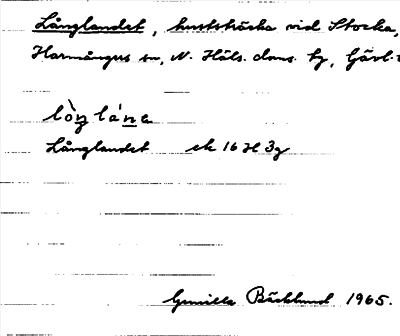 Långlandet, kuststräcka vid Stocka,
Harmångers sn, N. Häls. doms. hg, Gävl.
lòŋláne
Långlandet ek 16 H 3g
Gunilla Bäcklund 1965.